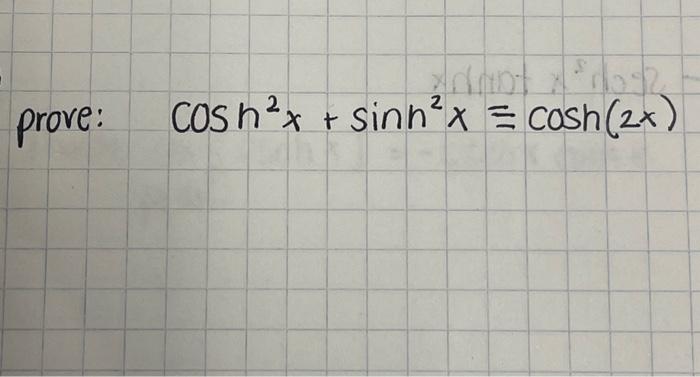 prove: cosh²x + sinh²x ≡ cosh(2x)